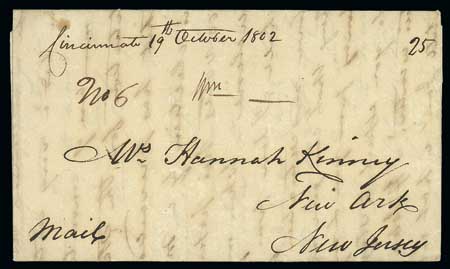 Cincinnati 19th October 1802
25
No 6
Mrs. Hannah Kinney
New Ark
Mail
New Jersey